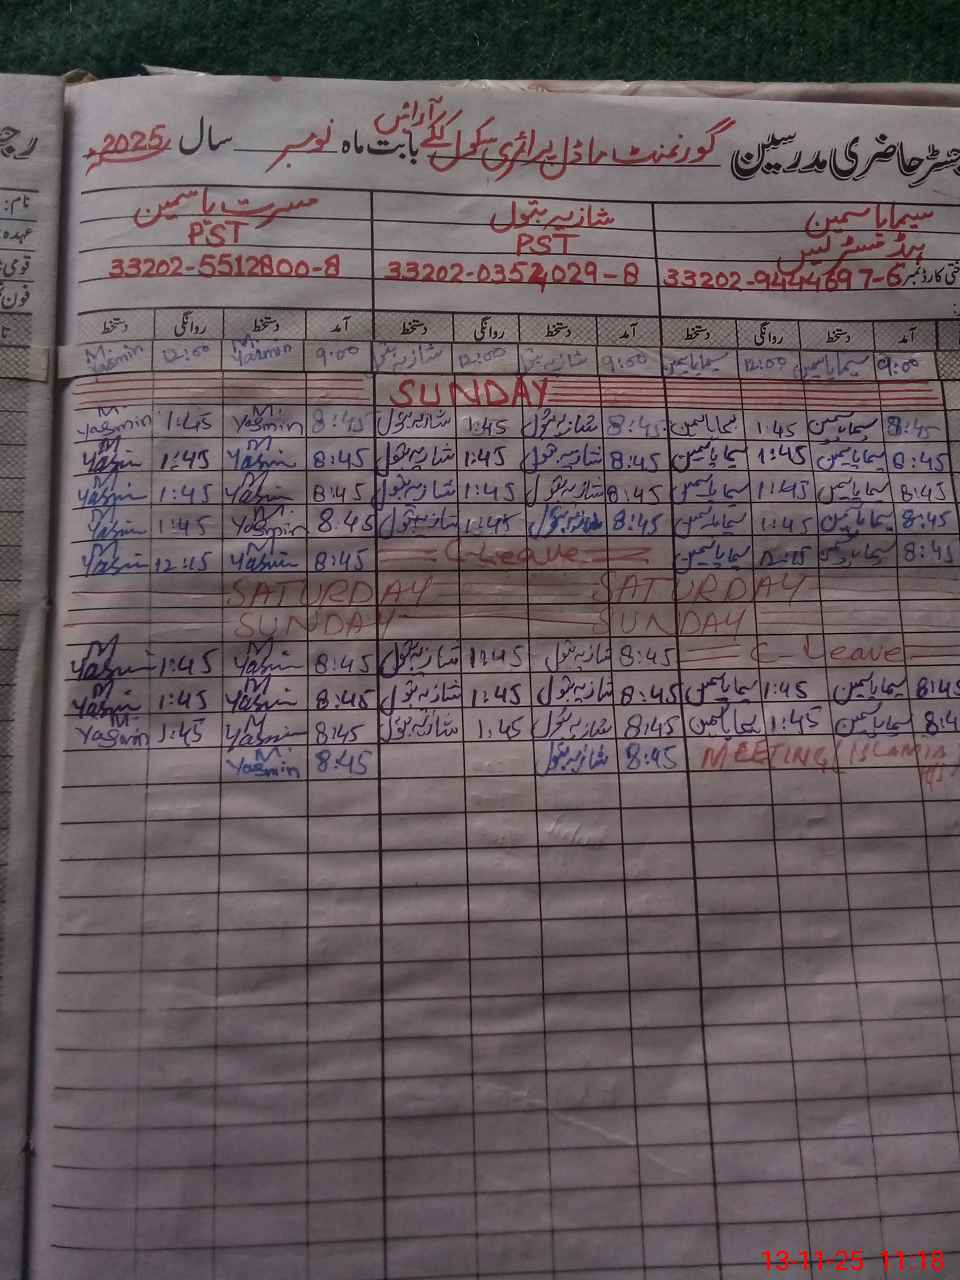 رجسٹر حاضری مدرسین گورنمنٹ ماڈل پرائمری سکول ککے آرائیں بابت ماہ نومبر سال 2025ء
سیما یاسمین شازیہ بتول مسرت یاسمین
ہیڈ مسٹریس PST PST
33202-9444697-6 33202-0352029-8 33202-5512800-8
نام:
عہدہ
قومی
فون
آمد دستخط روانگی دستخط آمد دستخط روانگی دستخط آمد دستخط روانگی دستخط
9:00 سیما یاسمین 12:00 سیما یاسمین 9:00 شازیہ بتول 12:00 شازیہ بتول 9:00 M. Yasmin 12:00 M. Yasmin
SUNDAY
8:45 سیما یاسمین 1:45 سیما یاسمین 8:45 شازیہ بتول 1:45 شازیہ بتول 8:45 M. Yasmin 1:45 M. Yasmin
8:45 سیما یاسمین 1:45 سیما یاسمین 8:45 شازیہ بتول 1:45 شازیہ بتول 8:45 M Yasmin 1:45 M Yasmin
8:45 سیما یاسمین 1:45 سیما یاسمین 8:45 شازیہ بتول 1:45 شازیہ بتول 8:45 M Yasmin 1:45 M Yasmin
8:45 سیما یاسمین 1:45 سیما یاسمین 8:45 شازیہ بتول 1:45 شازیہ بتول 8:45 M Yasmin 1:45 M Yasmin
8:45 سیما یاسمین 12:15 سیما یاسمین C-Leave 8:45 M Yasmin 12:15 M Yasmin
SATURDAY SATURDAY
SUNDAY SUNDAY
C-Leave 8:45 شازیہ بتول 1:45 شازیہ بتول 8:45 M Yasmin 1:45 M Yasmin
8:45 سیما یاسمین 1:45 سیما یاسمین 8:45 شازیہ بتول 1:45 شازیہ بتول 8:45 M Yasmin 1:45 M Yasmin
8:4 سیما یاسمین 1:45 سیما یاسمین 8:45 شازیہ بتول 1:45 شازیہ بتول 8:45 M Yasmin 1:45 M. Yasmin
MEETING ISLAMIA 8:45 شازیہ بتول 8:45 M. Yasmin
13-11-25 11:18